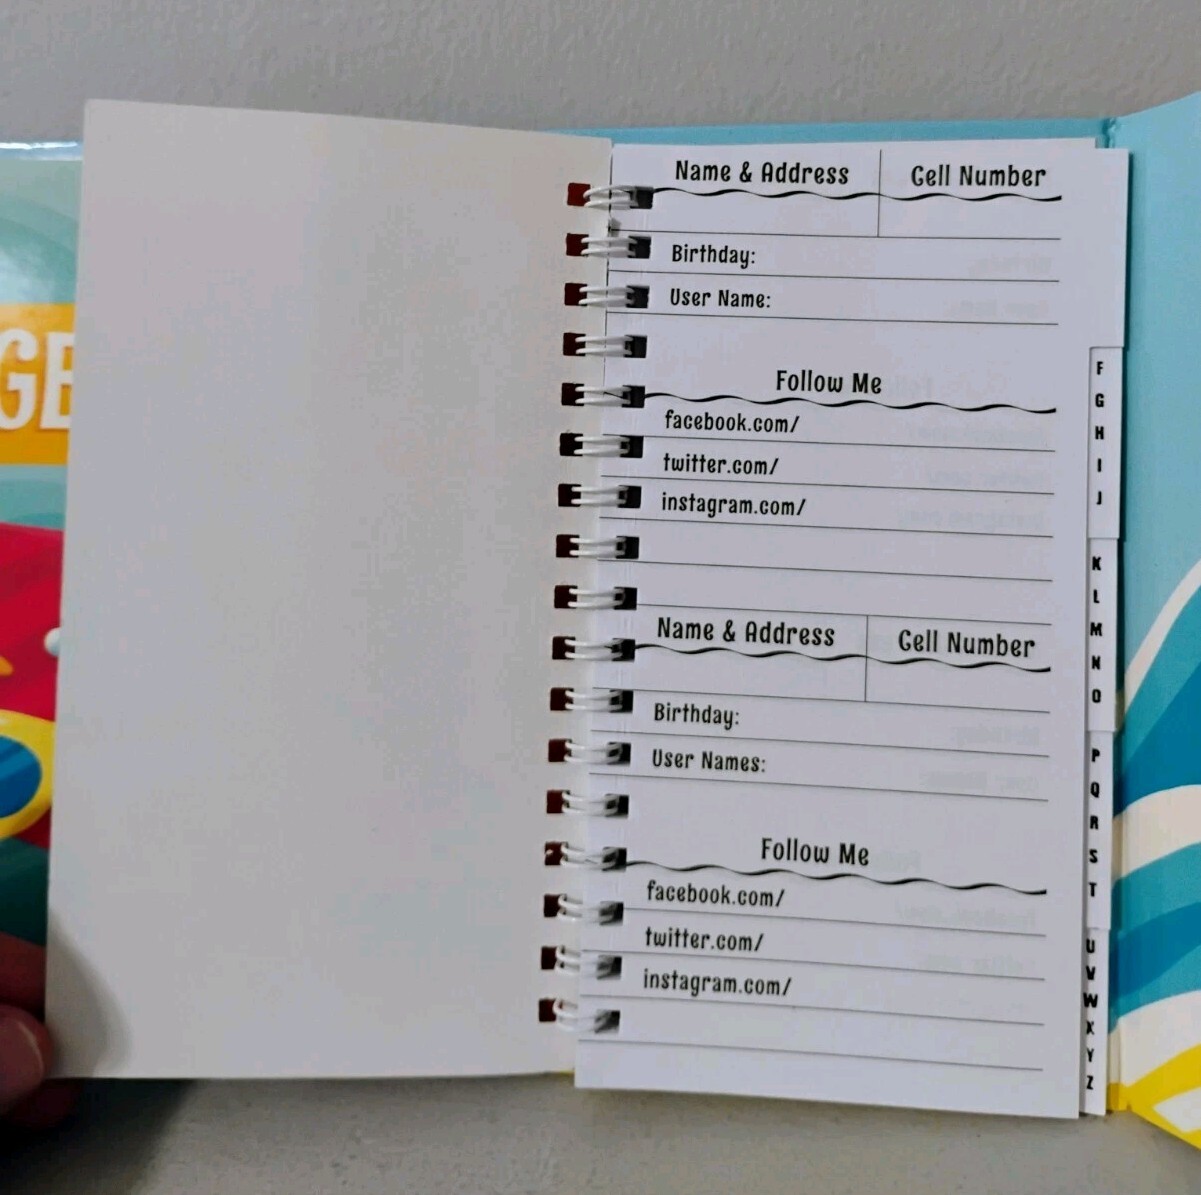 GE
Name & Address Cell Number
Birthday:
User Name:
Follow Me
facebook.com/
twitter.com/
instagram.com/
Name & Address Cell Number
Birthday:
User Names:
Follow Me
facebook.com/
twitter.com/
instagram.com/
F
G
H
I
J
K
L
M
N
O
P
Q
R
S
T
U
V
W
X
Y
Z